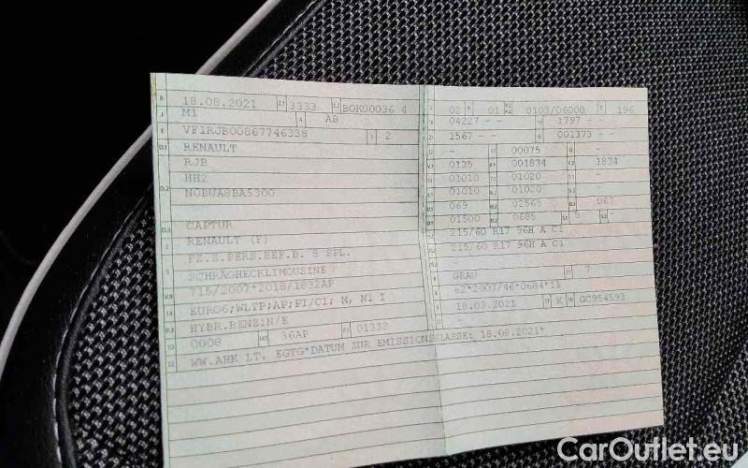 18.08.2021 3333 BOK00036 4
M1 AB
VF1RJB00867746338 2
RENAULT
RJB
HH2
CAPTUR
RENAULT (F)
FZ.Z.PERS.BEF.B. 8 SPL.
SCHRÄGHECKLIMOUSINE
715/2007*2018/1832AP
EURO6;WLTP;AP;PI/CI; M, N1 I
HYBR.BENZIN/E
0008 36AP 01332
WW.AHK LT. EGTG*DATUM ZUR EMISSIONSKLASSE: 18.08.2021*
02 01 0103/06000 196
04227 - - 1797 - -
1567 - - 001373 - -
- 00075 -
0135 001834 1834
01010 01020 -
01010 01020 -
069 02565 067
01500 0685 5 -
215/60 R17 96H A C1
215/60 R17 96H A C1
-
GRAU 7
18.03.2021 K GC954593
CarOutlet.eu